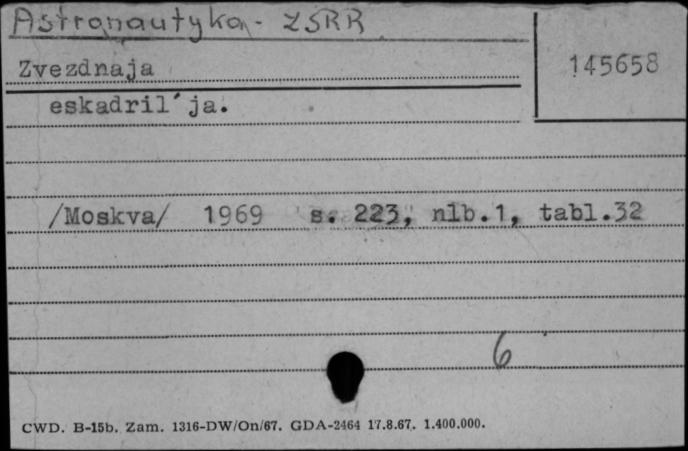 Astronautyka - ZSRR
Zvezdnaja
145658
eskadril´ja.
/Moskva/ 1969 s. 223, nlb.1, tabl.32
6
CWD. B-15b. Zam. 1316-DW/On/67. GDA-2464 17.8.67. 1.400.000.